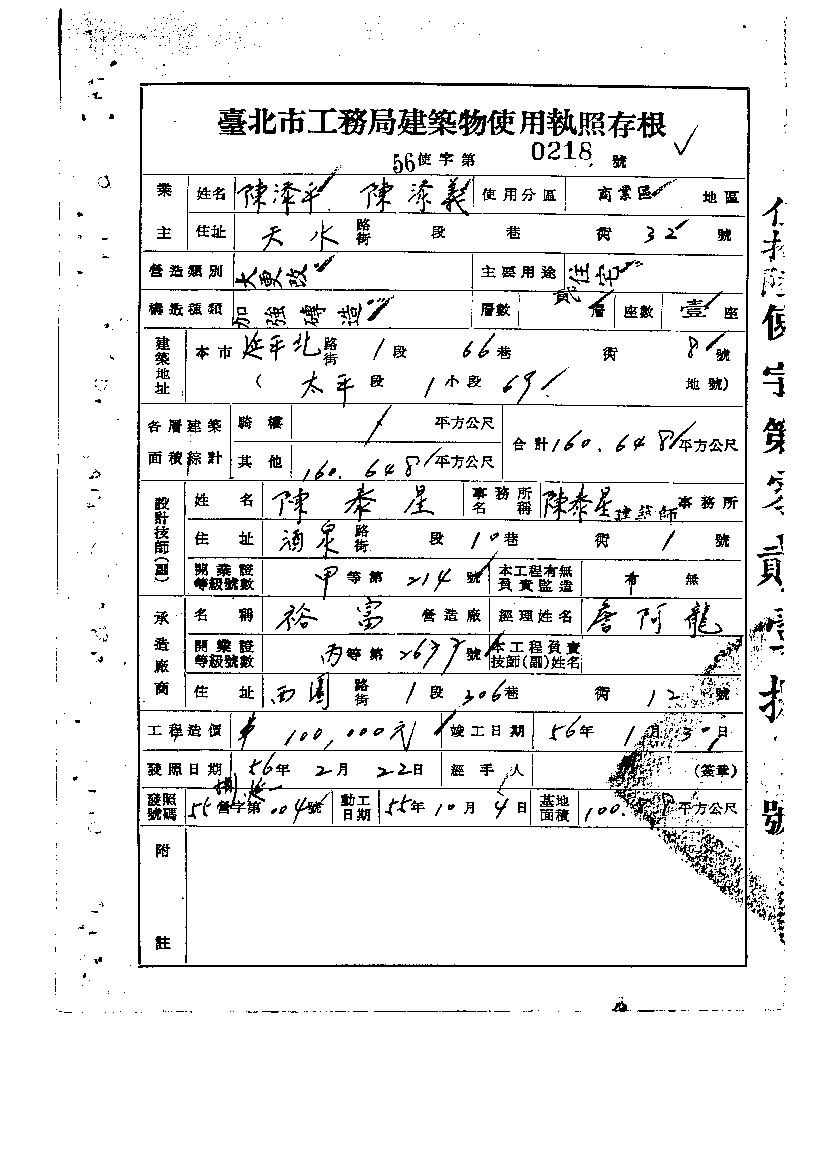 臺北市工務局建築物使用執照存根
56使字第 0218 號
業主 姓名 陳添平 陳添義 使用分區 商業區 地區
住址 天水 路街 段 巷 衖 32 號
營造類別 大更改 主要用途 住宅
構造種類 加強磚造 層數 貳層 座數 壹座
建築地址 本市 延平北 路街 1段 66巷 衖 8號
( 太平段 1小段 69 地號)
各層建築面積綜計 騎樓 / 平方公尺 合計 160.648 平方公尺
其他 160.648 平方公尺
設計技師(副) 姓名 陳泰星 事務所名稱 陳泰星建築師 事務所
住址 酒泉 路街 段 10巷 衖 1號
開業證等級號數 甲等第 214 號 本工程有無負責監造 有 無
承造廠商 名稱 裕富 營造廠 經理姓名 詹阿龍
開業證等級號數 丙等第 號 本工程負責技師(副)姓名
住址 西園 路街 1段 306巷 衖 12 號
工程造價 100,000元 竣工日期 56年 1月 30日
發照日期 56年 2月 22日 經手人 (簽章)
發照號碼 55 營字第 004號 動工日期 55年 10月 4日 基地面積 100. 平方公尺
附註
使字第零貳壹捌號